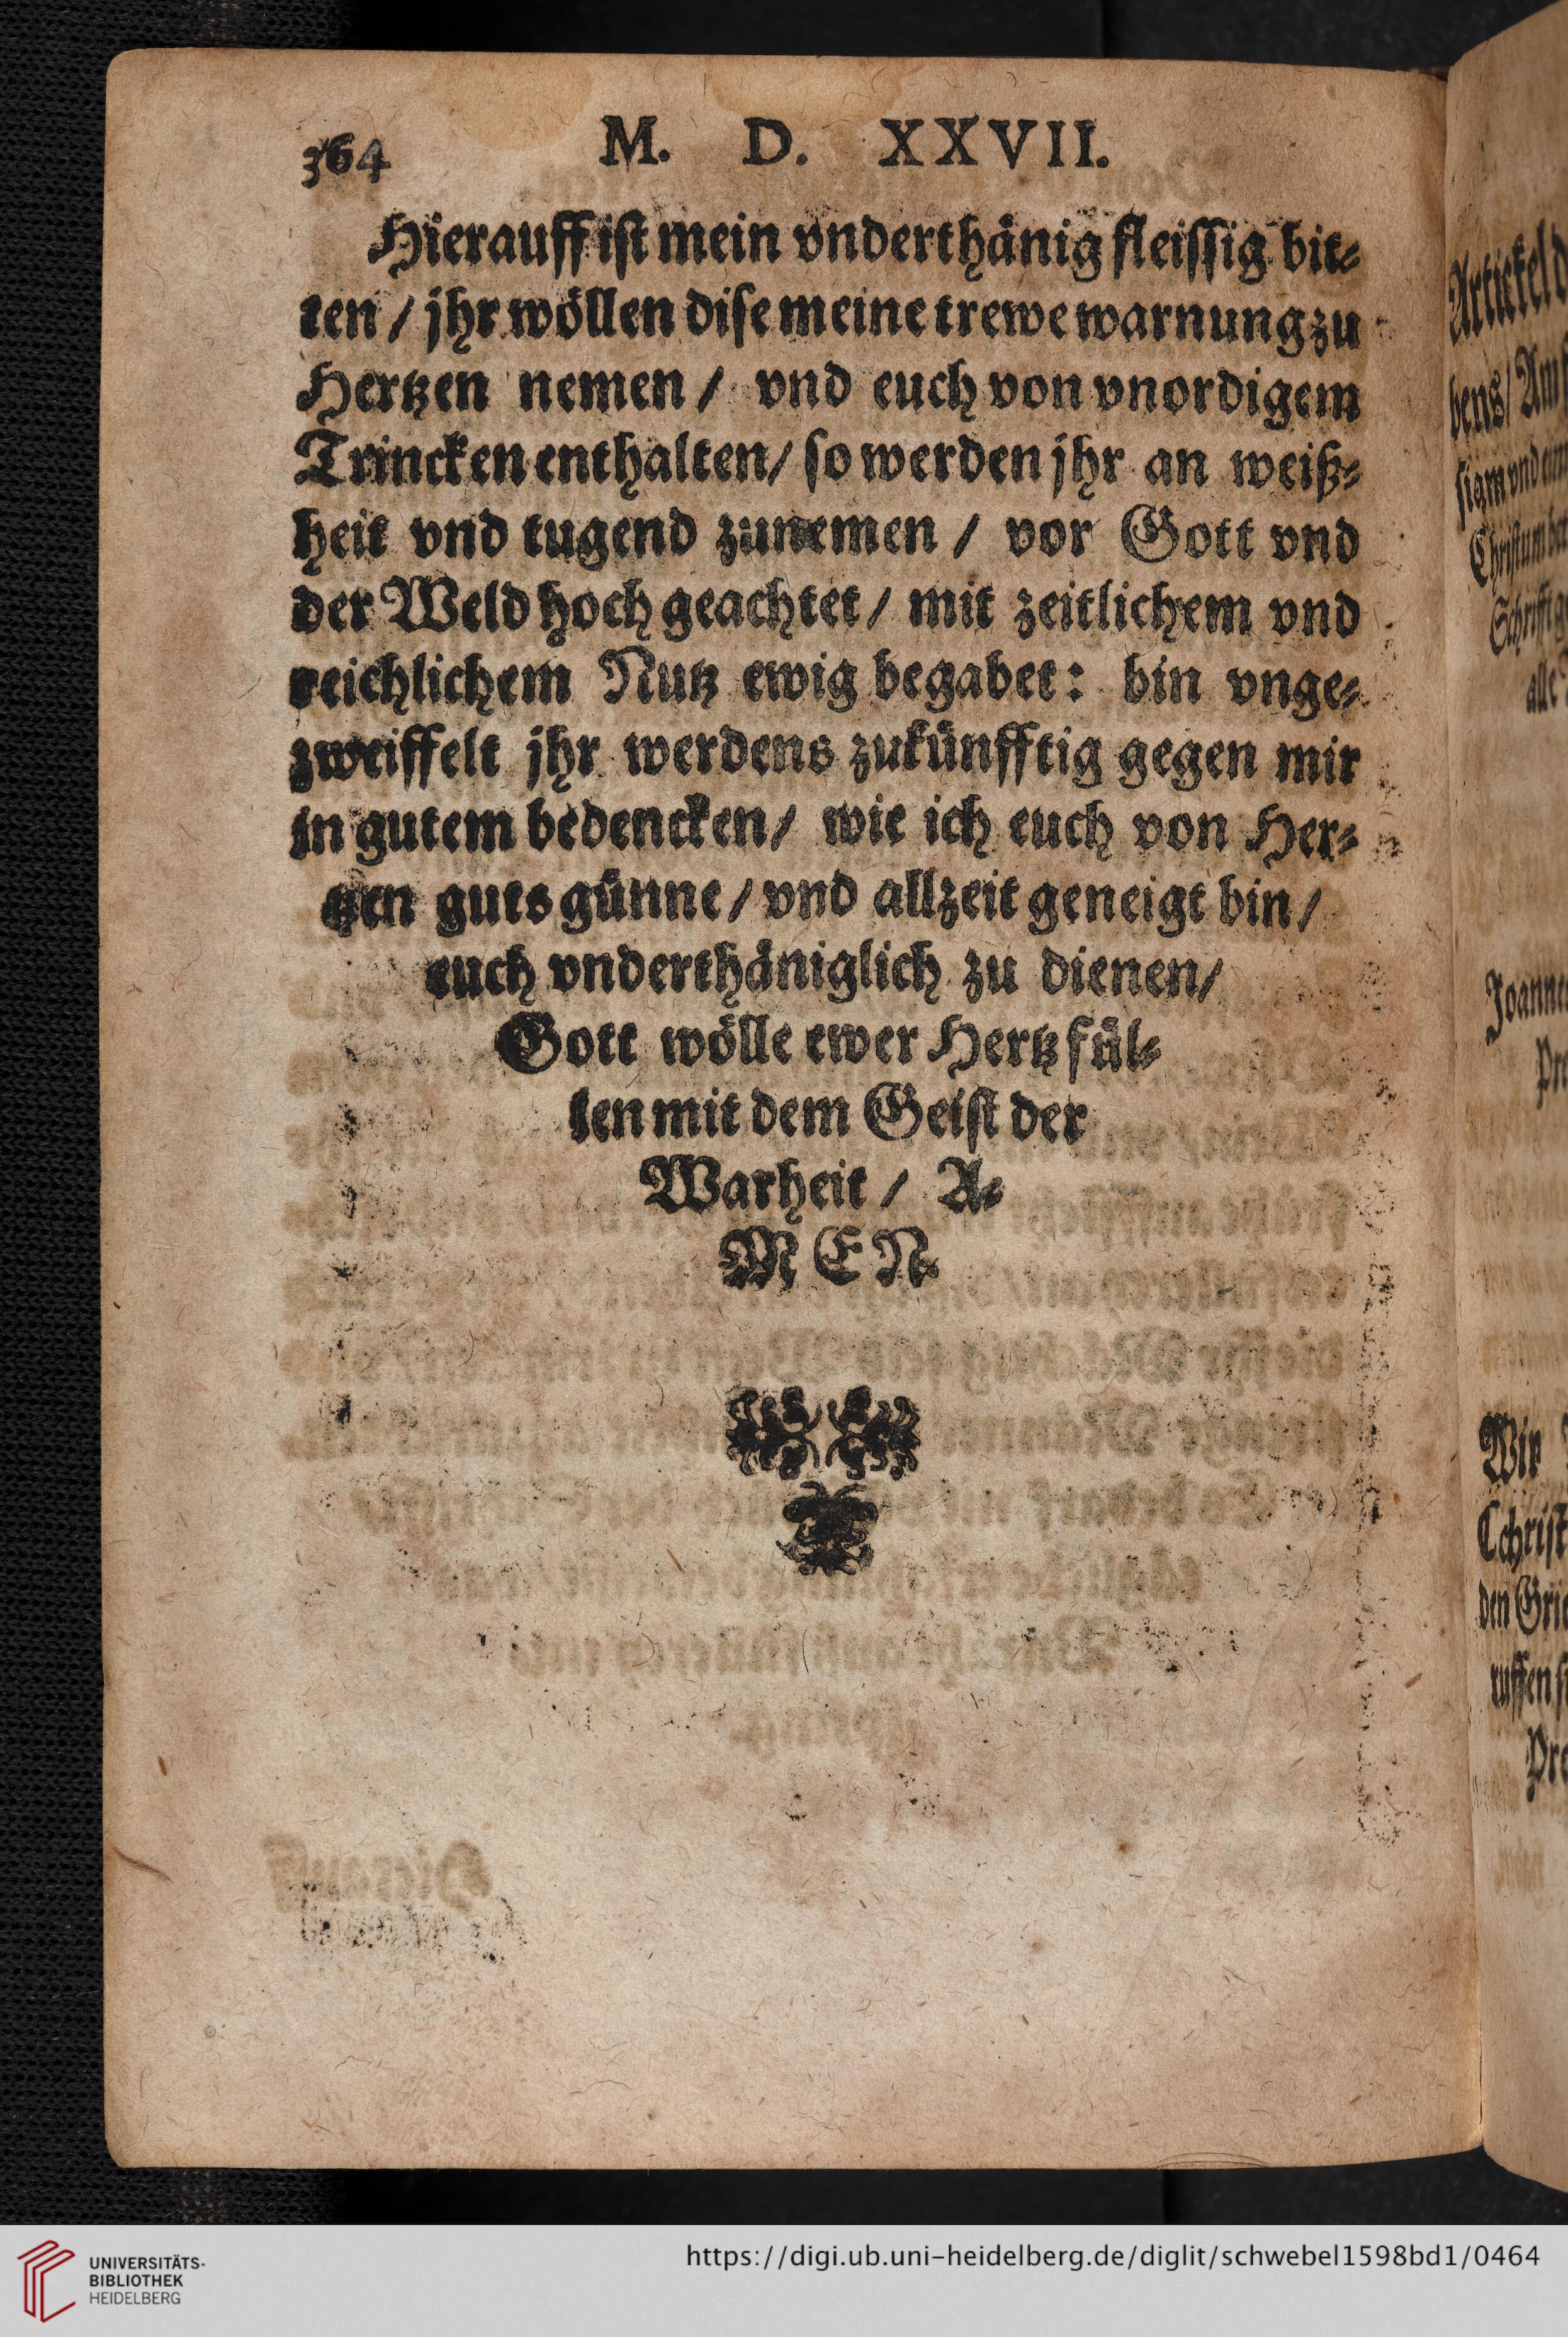 364 M. D. XXVII.
Hierauff ist mein vnderthänig fleissig bit-
ten / jhr wöllen dise meine trewe warnung zu
Hertzen nemen / vnd euch von vnordigem
Trincken enthalten / so werden jhr an weiß-
heit vnd tugend zunemen / vor Gott vnd
der Weld hoch geachtet / mit zeitlichem vnd
reichlichem Nutz ewig begabet: bin vnge-
zweiffelt jhr werdens zukünfftig gegen mir
in gutem bedencken / wie ich euch von Her-
tzen guts günne / vnd allzeit geneigt bin /
euch vnderthäniglich zu dienen /
Gott wölle ewer Hertz fül-
len mit dem Geist der
Warheit / A-
MEN.
Artickel
bens / Am
Christum
Schrifft
alle
Joanne
Pre
Wir
Cchrist
den Grie
ruffen
Pre
UNIVERSITÄTS-
BIBLIOTHEK
HEIDELBERG
https://digi.ub.uni-heidelberg.de/diglit/schwebel1598bd1/0464